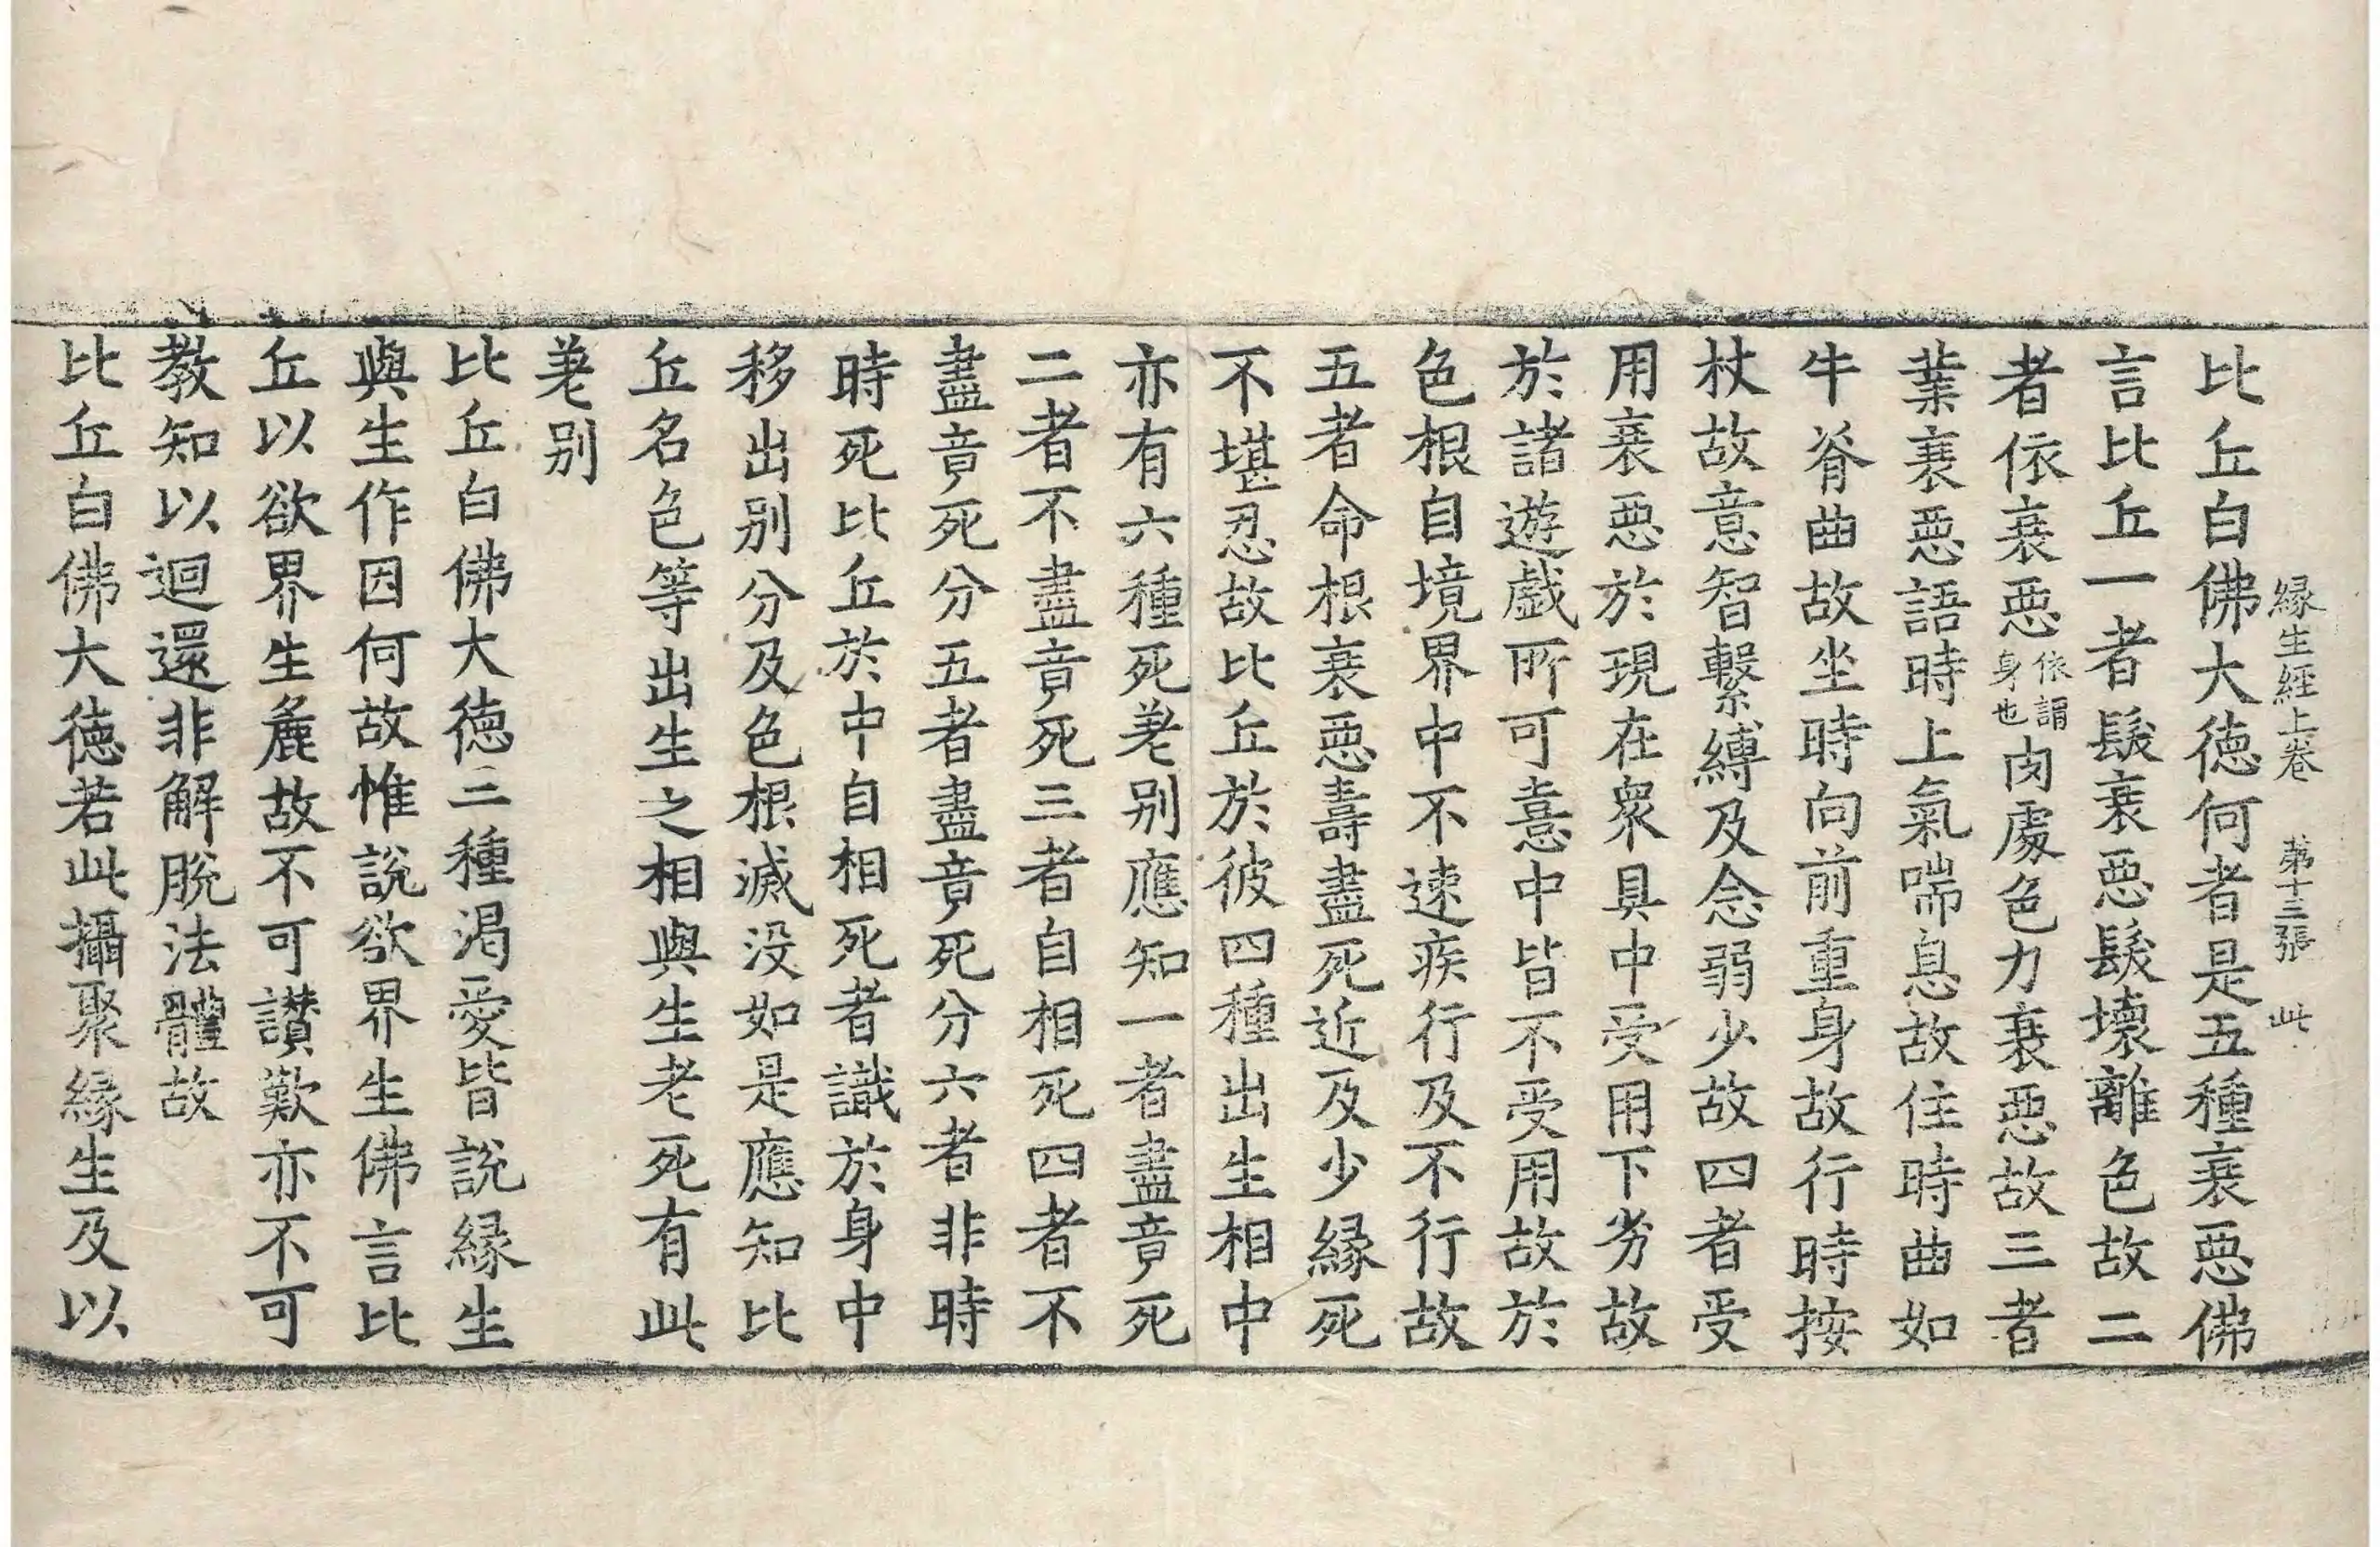 縁生經上卷 第十三張 此
比丘白佛大徳何者是五種衰惡佛
言比丘一者髮衰惡髮壞離色故二
者依衰惡依謂身也肉處色力衰惡故三者
業衰惡語時上氣喘息故住時曲如
牛脊曲故坐時向前重身故行時按
杖故意智繫縛及念弱少故四者受
用衰惡於現在衆具中受用下劣故
於諸遊戲所可憙中皆不受用故於
色根自境界中不速疾行及不行故
五者命根衰惡壽盡死近及少縁死
不堪忍故比丘於彼四種出生相中
亦有六種死差别應知一者盡竟死
二者不盡竟死三者自相死四者不
盡竟死分五者盡竟死分六者非時
時死比丘於中自相死者識於身中
移出别分及色根滅没如是應知比
丘名色等出生之相與生老死有此
差别
比丘白佛大徳三種渴愛皆說縁生
與生作因何故惟說欲界生佛言比
丘以欲界生麁故不可讃歎亦不可
教知以迴還非解脫法體故
比丘白佛大徳若此攝聚縁生及以